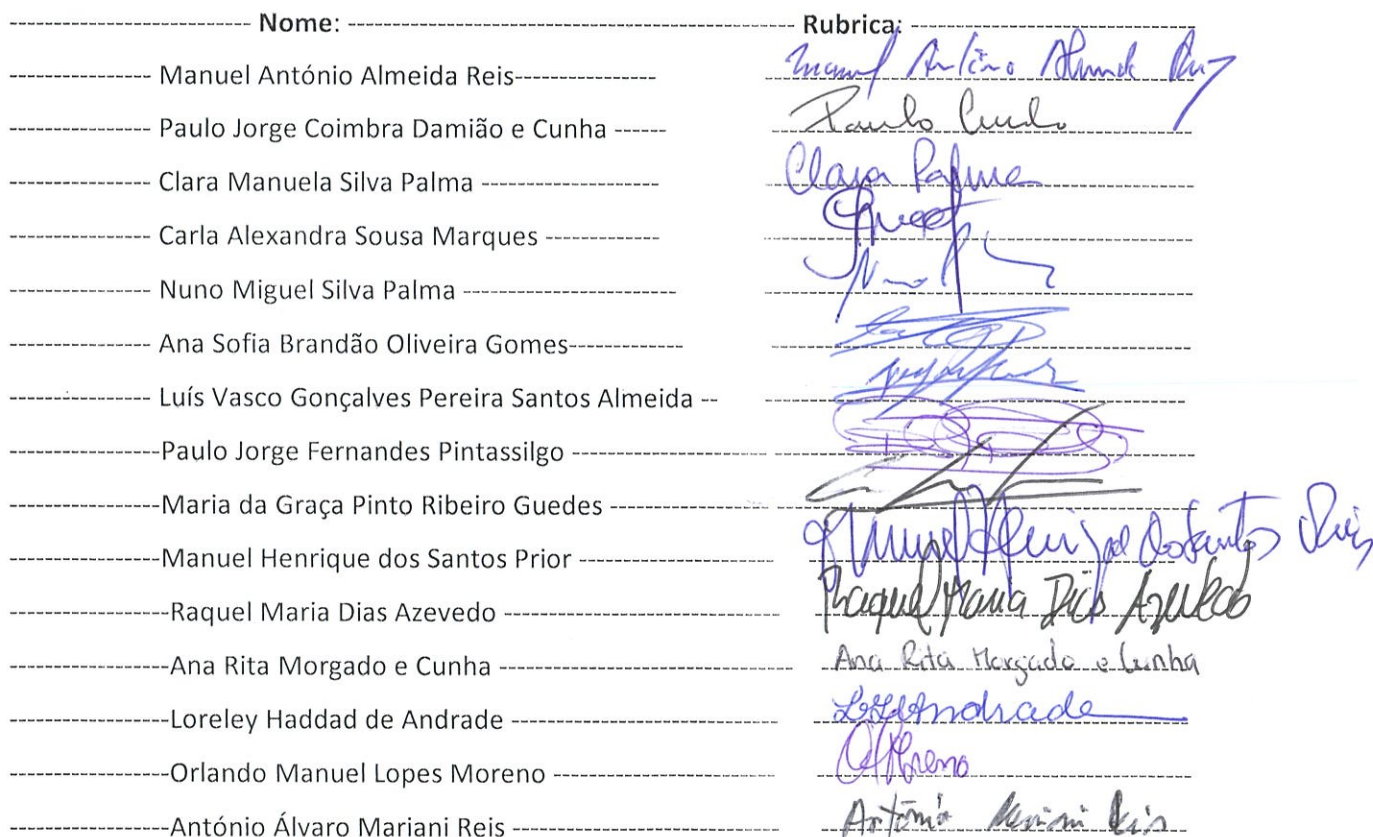 ------------------------ Nome: --------------------------------------------- Rubrica: ----------------------------
-------------- Manuel António Almeida Reis-------------- Manuel António Almeida Reis
-------------- Paulo Jorge Coimbra Damião e Cunha ------ Paulo Cunha
-------------- Clara Manuela Silva Palma ------------------ Clara Palma
-------------- Carla Alexandra Sousa Marques -----------
-------------- Nuno Miguel Silva Palma ---------------------
-------------- Ana Sofia Brandão Oliveira Gomes-----------
-------------- Luís Vasco Gonçalves Pereira Santos Almeida --
---------------Paulo Jorge Fernandes Pintassilgo ---------------------
---------------Maria da Graça Pinto Ribeiro Guedes -----------------
---------------Manuel Henrique dos Santos Prior -------------------- Manuel Henrique dos Santos Prior
---------------Raquel Maria Dias Azevedo --------------------------- Raquel Maria Dias Azevedo
---------------Ana Rita Morgado e Cunha ---------------------------- Ana Rita Morgado e Cunha
---------------Loreley Haddad de Andrade -------------------------- Andrade
---------------Orlando Manuel Lopes Moreno ---------------------- Moreno
---------------António Álvaro Mariani Reis -------------------------- António Mariani Reis